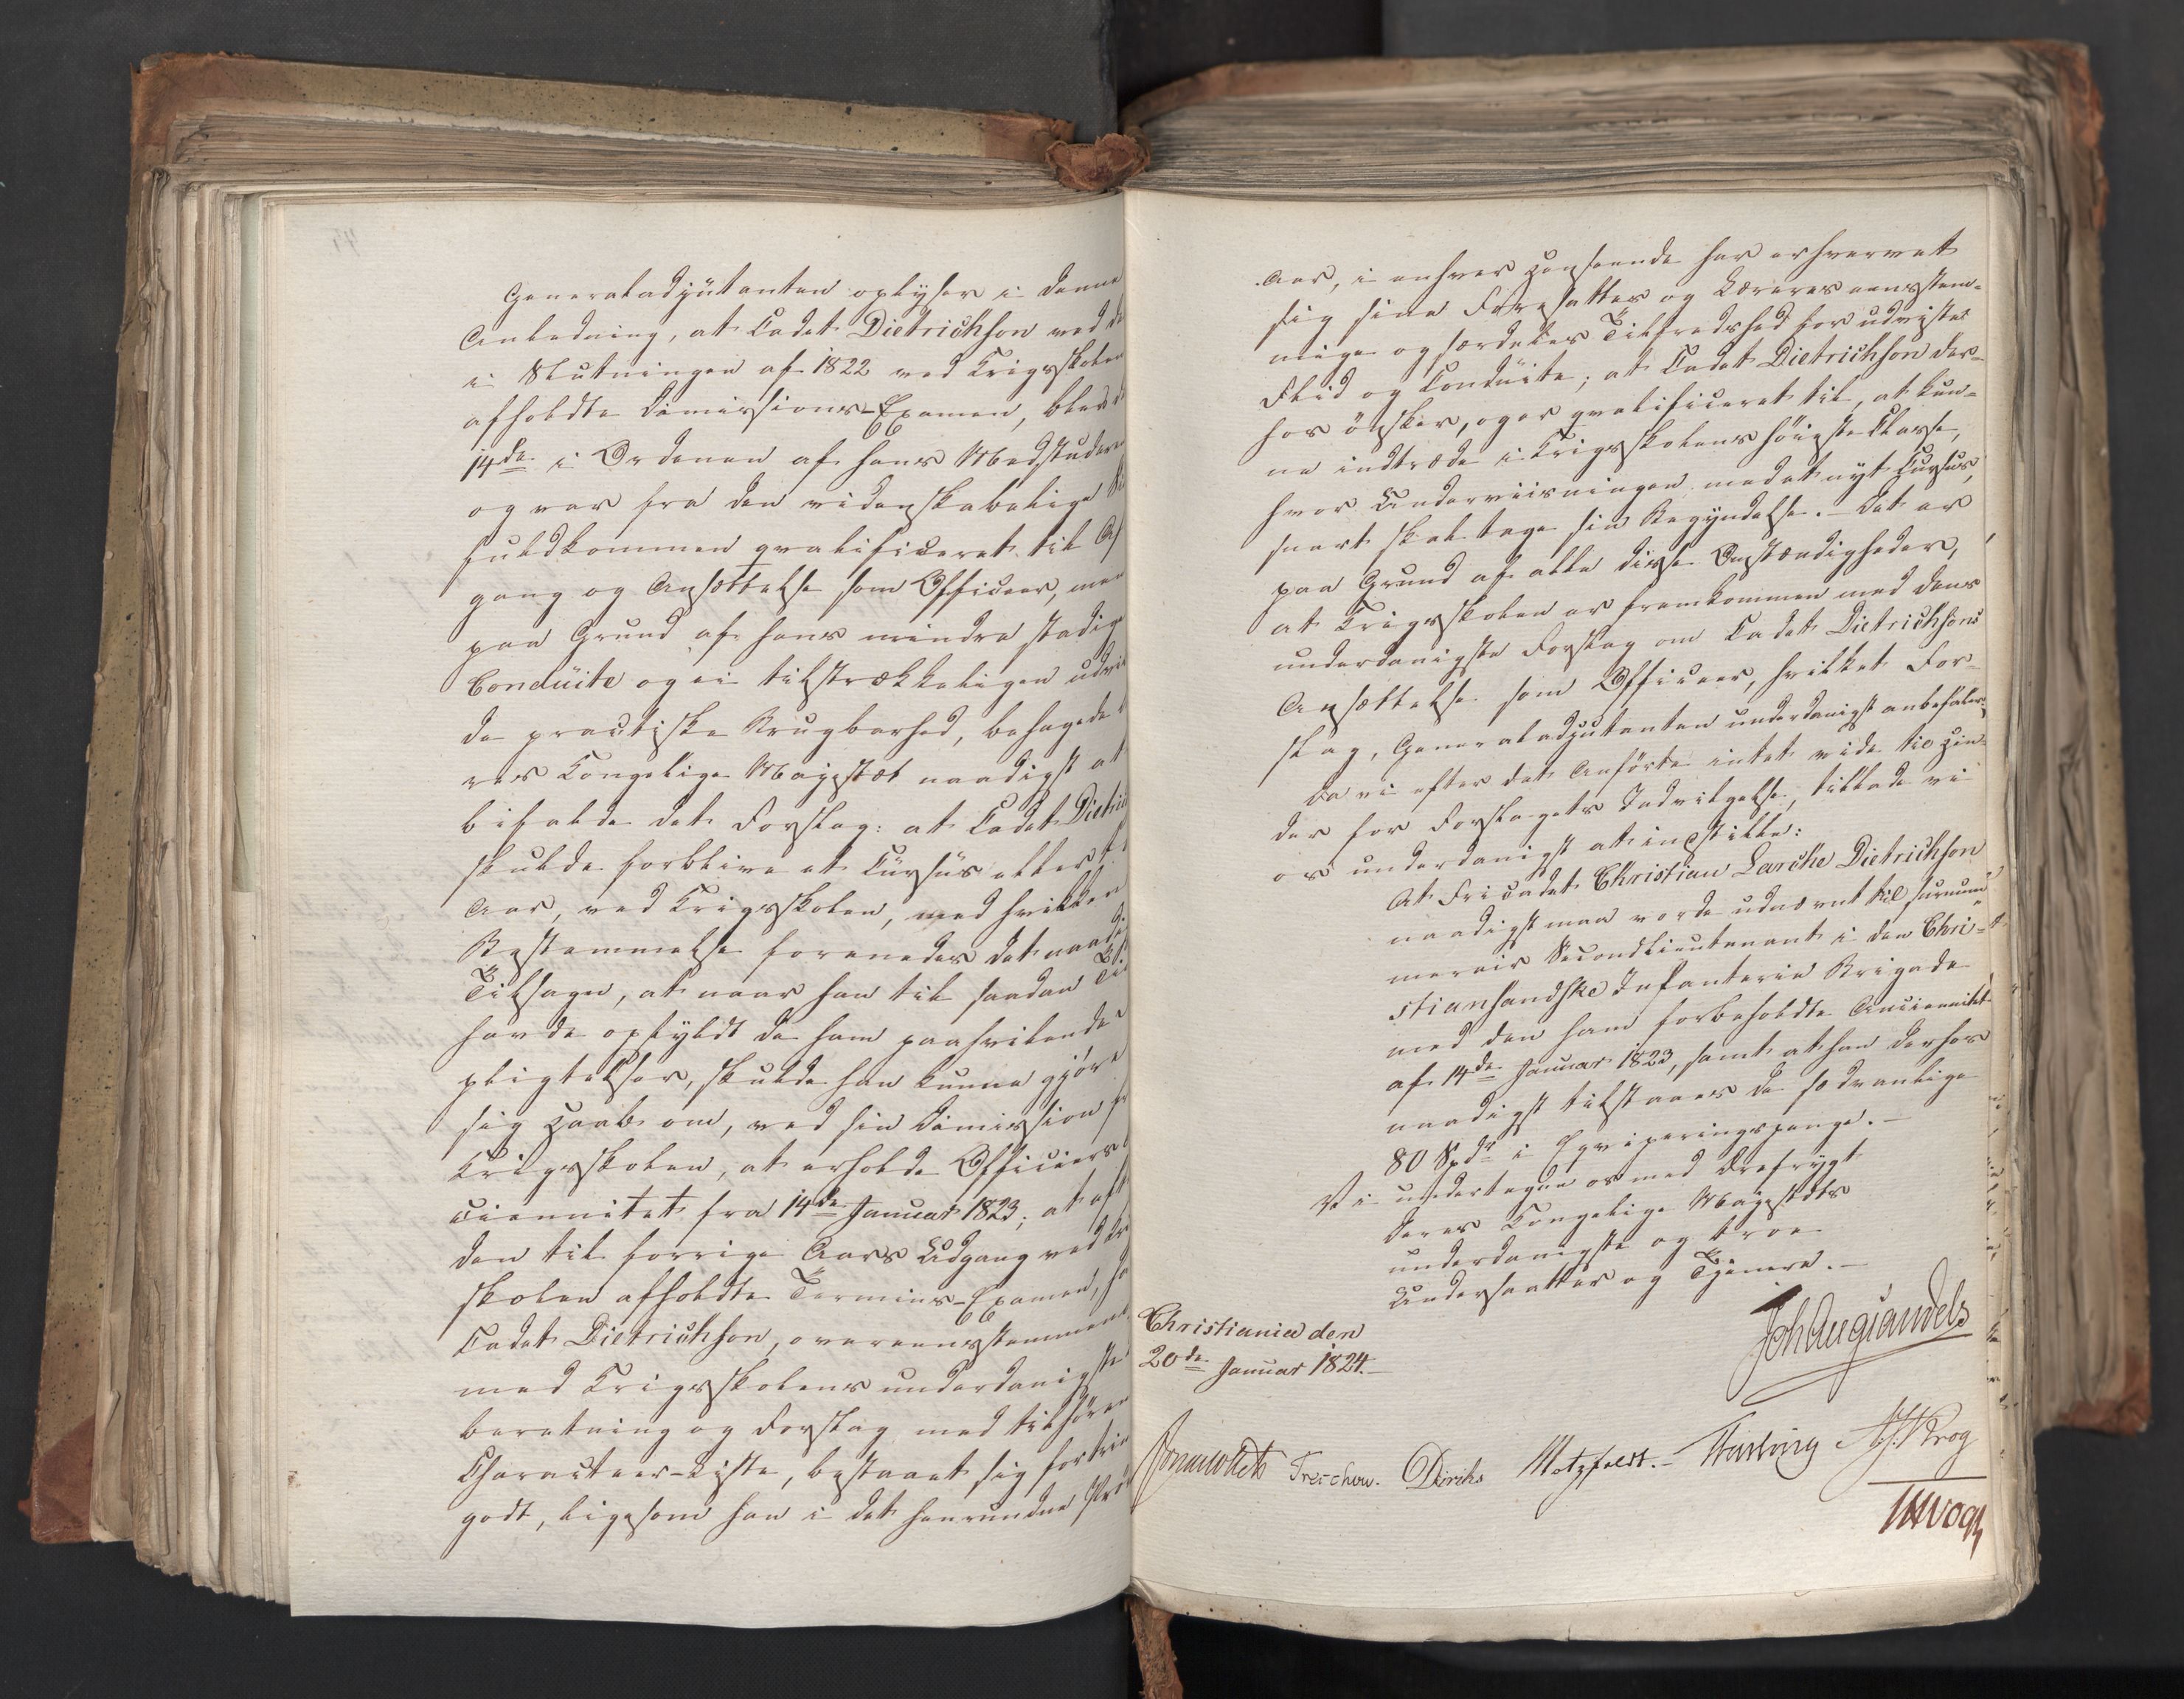 Generaladjütanten oplyser i denne
Anledning, at Cadet Dietrichson ved de
i Slutningen af 1822 ved Krigsskolen
afholdte Dimissions-Examen, blev
14de i Ordenen af hans Medstudere
og var fra den videnskabelige
fuldkommen qvalificeret til Af
gang og Ansættelse som Officeer, men
paa Grund af hans mindre stadige
Condüite og ei tilstrækkeligen udvi
de practiske Brugbarhed, behagede
res Kongelige Majestæt naadigst at
bifalde det Forslag: at Cadet Dietrich
skulde forblive et Cürsüs eller
Aar, ved Krigsskolen, med hvilken
Bestemmelse forenedes det naadi
Tilsagn, at naar han til saadan Ti
havde opfyldt de ham paahvilende
pligtelser, skulde han kunne gjöre
sig Haab om, ved sin Dimission fr
Krigsskolen, at erholde Officiers
ciennitet fra 14de Januar 1823; at eft
den til forrige Aars Udgang ved Kr
skolen afholdte Termins-Examen, ha
Cadet Dietrichson, overeensstemmende
med Krigsskolens underdanigste
beretning og Forslag med tilhören
Characteer-Liste, bestaaet sig fortrin
godt, ligesom han i det henrundne Pr
Aar, i enhver Henseende har erhvervet
sig sine Foresattes og Læreres eenstem-
mige og særdeles Tilfredshed for udvijste
Flid og Condüite; at Cadet Dietrichson der-
hos önsker, og er qvalificeret til, at kun-
ne indtræde i Krigsskolens höieste Classe,
hvor Underviisningen med et nyt Cursus,
snart skal tage sin Begyndelse. – Det er
paa Grund af alle disse Omstændigheder,
at Krigsskolen er fremkommen med dens
underdanigste Forslag om Cadet Dietrichsons
Ansættelse som Officeer, hvilket For-
slag, Generaladjutanten underdanigst anbefaler.
Da vi efter det Anförte intet vide til Hin-
der for Forslagets Indvilgelse, tillade vi
os underdanigst at indstille:
At Fricadet Christian Lerche Dietrichson
naadigst maa vorde udnævnt til surnum-
merair Secondlieutenant i den Chri-
stiansandske Infanterie Brigade
med den ham forbeholdte Anciennitet
af 14de Januar 1823, samt at han derhos
naadigst tilstaaes de sædvanlige
80 Spdr i Eqviperingspenge. –
Vi undertegne os med Ærefrygt
Deres Kongelige Majestæts
underdanigste og troe
Undersaatter og Tjenere. –
Joh Aug Sandels
Christiania den
20de Januar 1824. –
Sommerhielm Treschow. Diriks Motzfeldt. – Fasting A. Krog
JHVogt